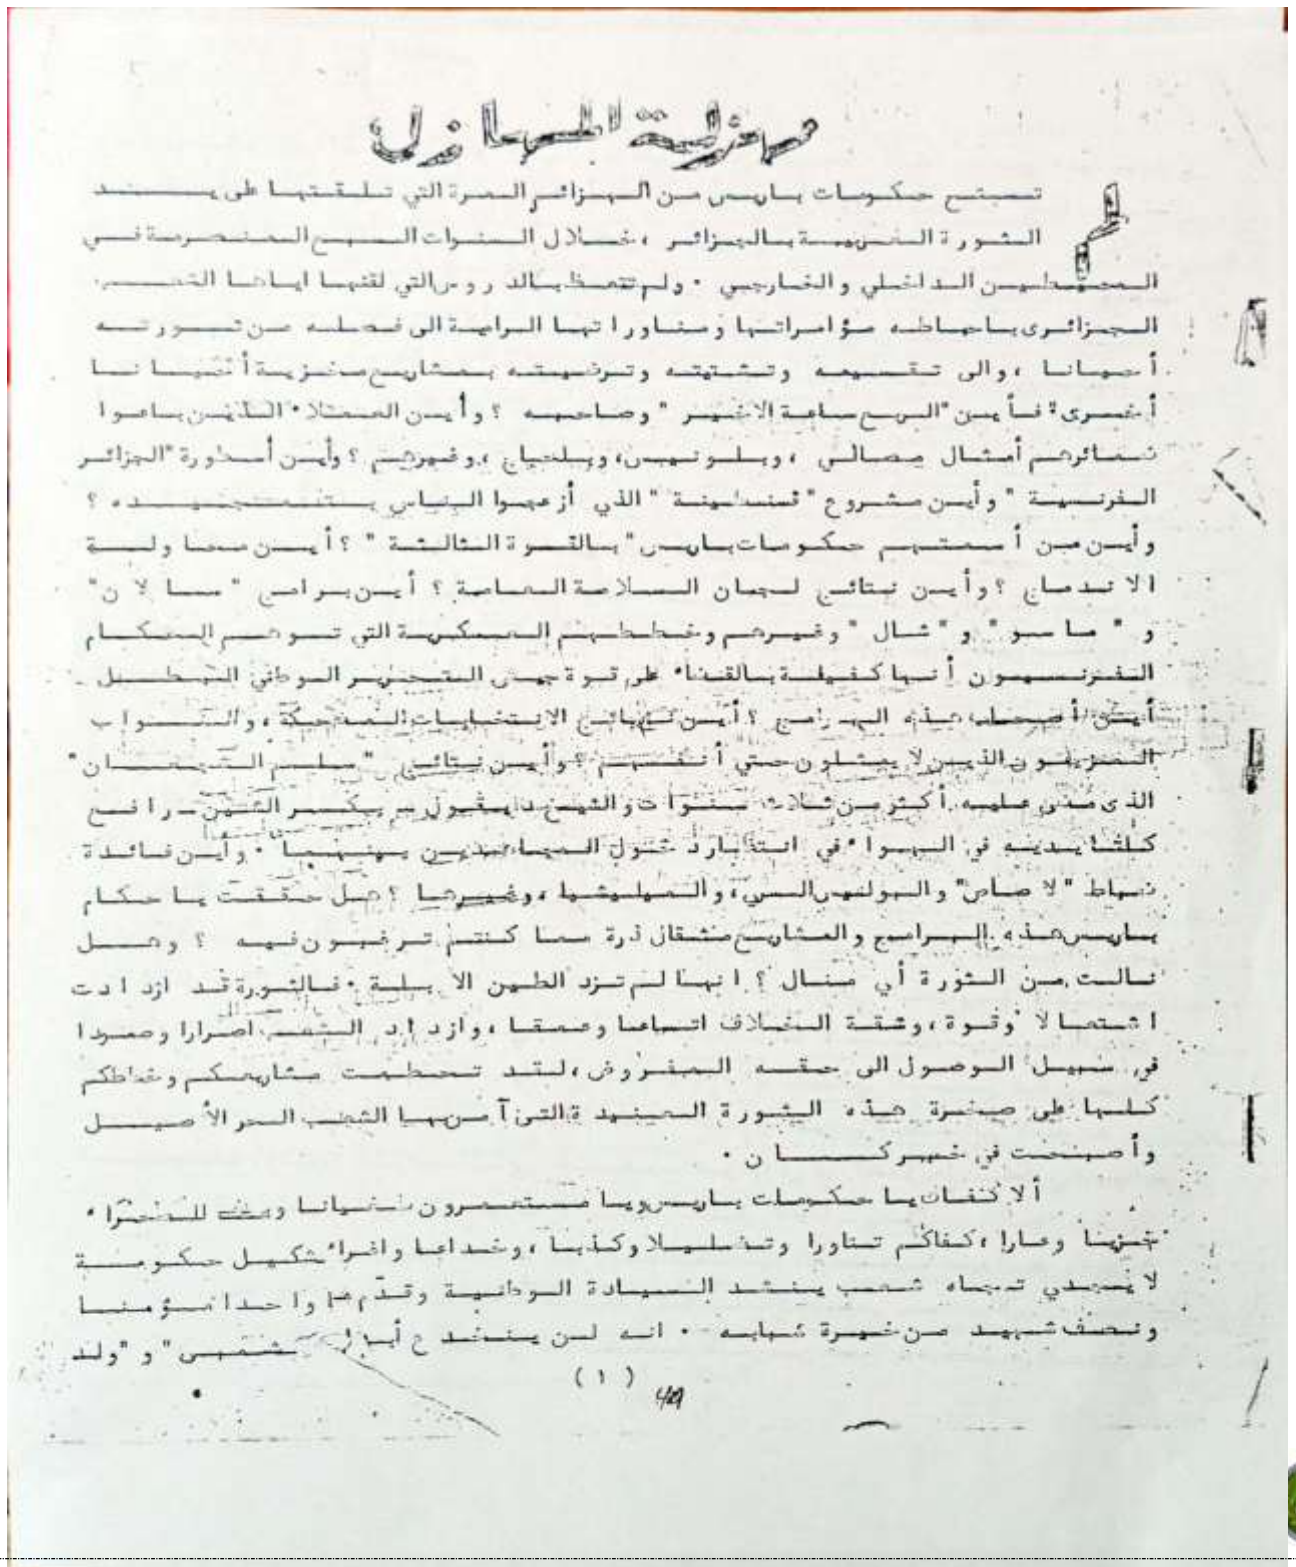 مهزلة المهازل
لم تستح حكومات باريس من الهزائم المرة التي تلقتها على يد
الثورة بالجزائر ، خلال السنوات السبع المنصرمة في
المحيطين الداخلي و الخارجي . ولم تتعظ بالدروس التي لقنها اياها الشعب
الجزائرى باحباطه مؤامراتها ومناوراتها الرامية الى فصله عن ثورته
أحيانا ، والى تقسيمه وتشتيته وترضيته بمشاريع مخزية أحيانا
أخرى : فأين "الربع ساعة الاخير" وصاحبه ؟ وأين العملاء الذين باعوا
ضمائرهم أمثال مصالي ، وبلونيس، وبلحاج ، وغيرهم ؟ وأين أسطورة "الجزائر
الفرنسية" وأين مشروع "قسنطينة" الذي أزعجوا الناس ؟
وأين من أسمتهم حكومات باريس "بالقوة الثالثة" ؟ أين محاولة
الاندماج ؟ وأين نتائج لجان السلامة العامة ؟ أين برامج "سالان"
و "ماسو" و "شال" وغيرهم وخططهم العسكرية التي توهم الحكام
الفرنسيون أنها كفيلة بالقضاء على قوة جيش التحرير الوطني البطل
هذه البرامج ؟ أين نتائج الانتخابات المضحكة ، والنواب
المزيفون الذين لا يمثلون حتي أنفسهم ؟ وأين نتائج "سلم الشجعان"
الذى مضى عليه أكثر من ثلاث سنوات والشيخ ديغول - بكسر الشين - رافع
كلتا يديه في الهواء في انتظار نزول المجاهدين . وأين فائدة
ضباط "لاصاص" والبوليس السري، والميليشيا ، وغيرها ؟ هل حققت يا حكام
باريس هذه البرامج والمشاريع مثقال ذرة مما كنتم ترغبون فيه ؟ وهل
نالت من الثورة أي منال ؟ انها لم تزد الطين الا بلة . فالثورة قد ازدادت
اشتعالا وقوة ، وشقة الخلاف اتساعا وعمقا ، وازداد الشعب اصرارا وصمودا
في سبيل الوصول الى حقه المفروض ، لقد تحطمت مشاريعكم وخططكم
كلها على صخرة هذه الثورة العنيدة التي آمن بها الشعب الحر الأصيل
وأصبحت في خبر كان .
ألا كفاك يا حكومات باريس ويا مستعمرون
خزيا وعارا ، كفاكم تناورا وتضليلا وكذبا ، وخداعا واغراء حكومة
لا تجدي تجاه شعب ينشد السيادة الوطنية وقدم واحدا
ونصف شهيد من خيرة شبابه . انه لن ينخدع و "ولد
( ١ )
49